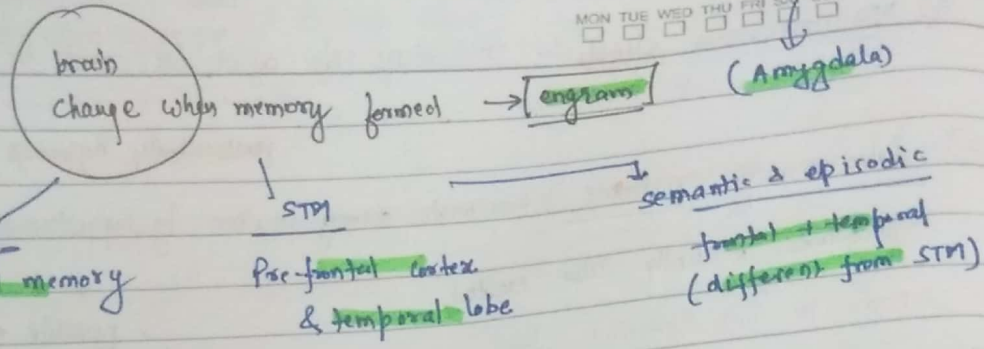 MON TUE WED THU FRI
brain
change when memory formed → engram
(Amygdala)
STM
semantic & episodic
memory
Pre-frontal cortex
& temporal lobe
frontal + temporal
(different from STM)